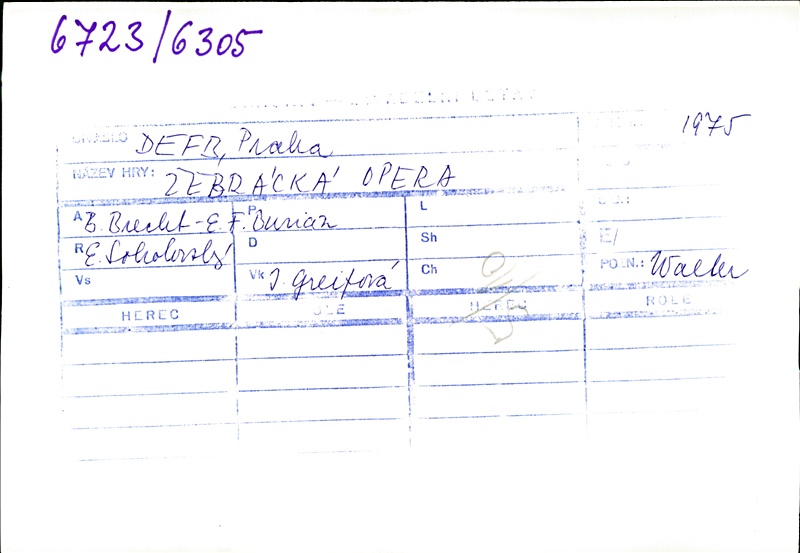 6723/6305
DIVADLO DEFB, Praha 1975
NÁZEV HRY: ŽEBRÁCKÁ OPERA
A B. Brecht - E. F. Burian P L
R E. Sokolovský D Sh E/
Vs Vk J. Greifová Ch POZN.: Walter
HEREC ROLE HEREC ROLE